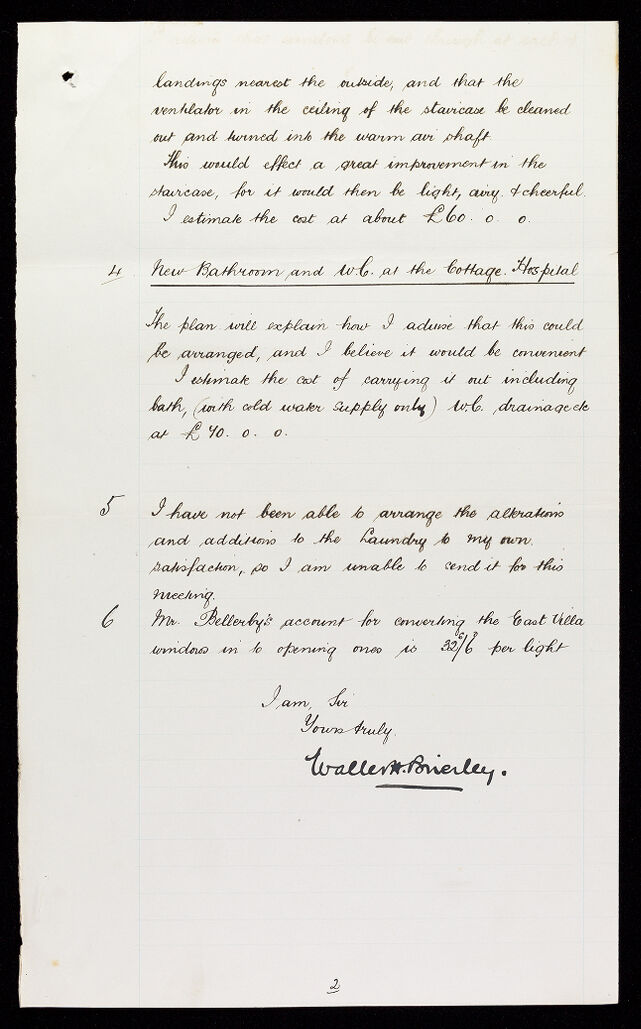 landings nearest the outside, and that the
ventilator in the ceiling of the staircase be cleaned
out and turned into the warm air shaft.
This would effect a great improvement in the
staircase, for it would then be light, airy & cheerful.
I estimate the cost at about £60. 0. 0.
4 New Bathroom and W.C. at the Cottage. Hospital
The plan will explain how I advise that this could
be arranged, and I believe it would be convenient
I estimate the cost of carrying it out including
bath, (with cold water supply only) W.C. drainage etc
at £70. 0. 0.
5 I have not been able to arrange the alterations
and additions to the Laundry to my own
satisfaction, so I am unable to send it for this
meeting.
6 Mr. Bellerby's account for converting the East Villa
windows in to opening ones is 32s/6d per light
I am, Sir
Yours truly.
Walter H. Brierley.
2